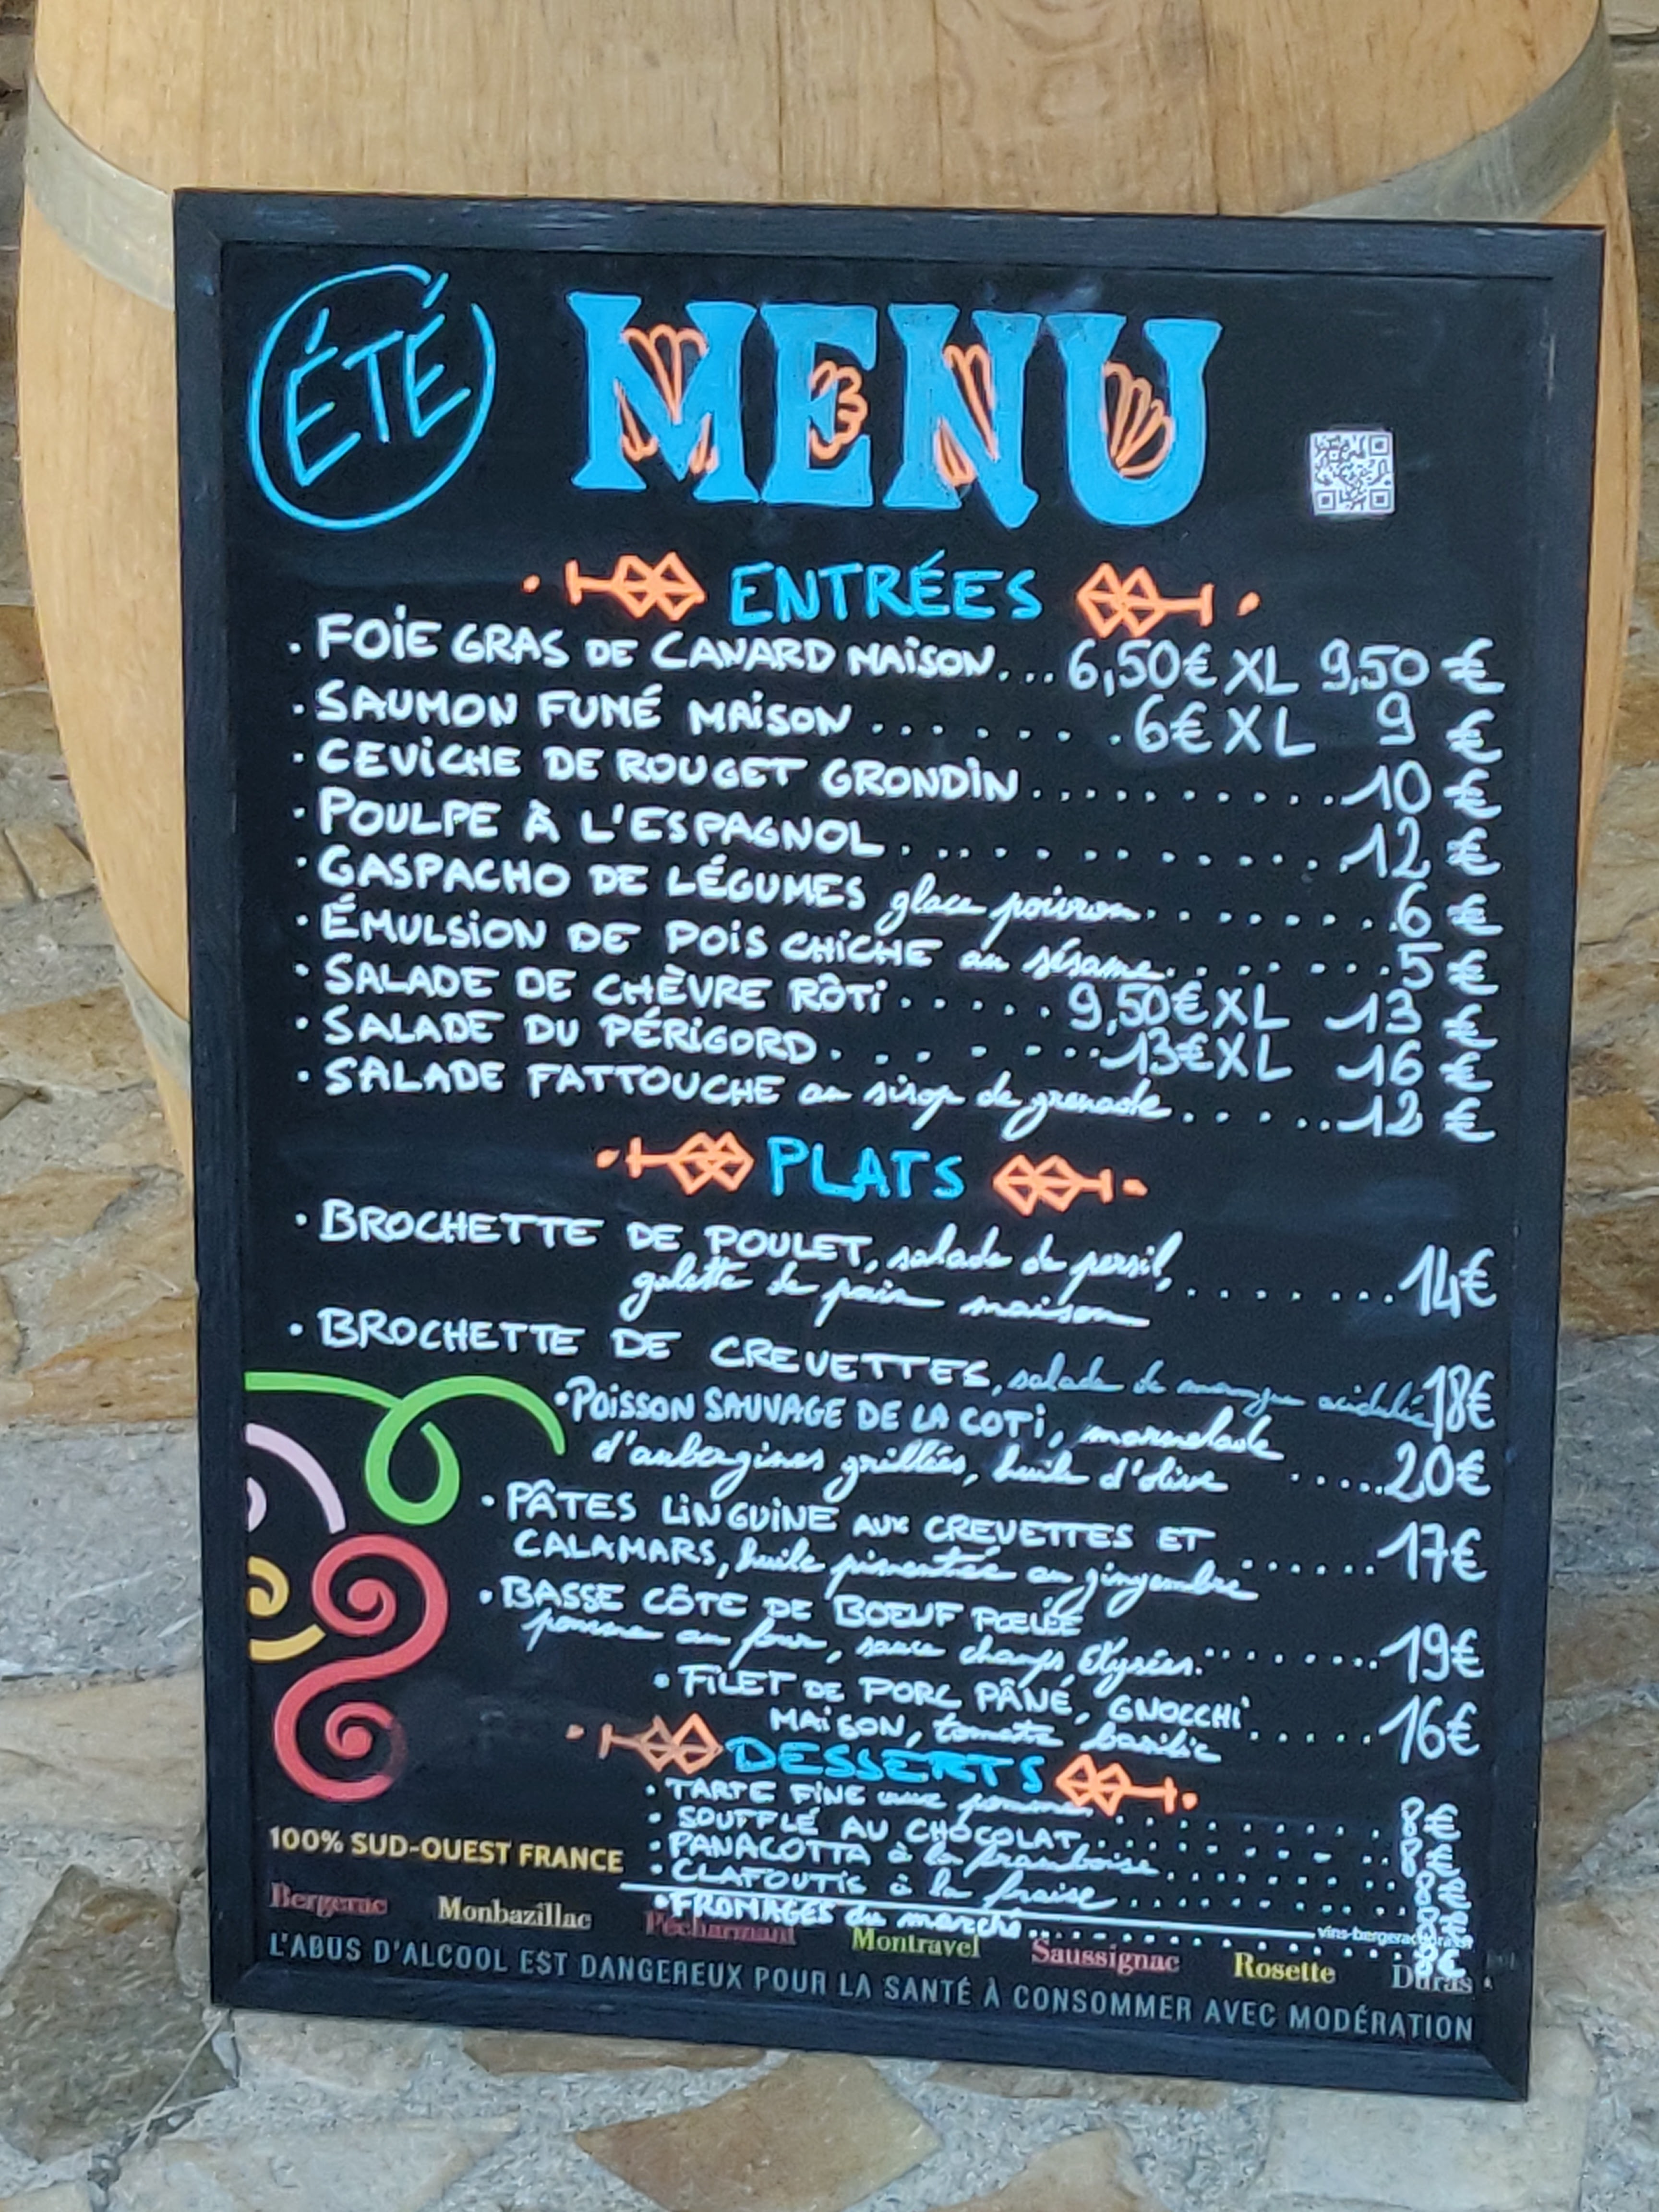 ÉTÉ
MENU
ENTRÉES
. FOIE GRAS DE CANARD MAISON... 6,50€ XL 9,50 €
. SAUMON FUMÉ MAISON . . . . . . . 6€ XL 9 €
. CEVICHE DE ROUGET GRONDIN........... 10 €
. POULPE À L'ESPAGNOL . . . . . . . . . . . . 12 €
. GASPACHO DE LÉGUMES glace poivron . . . . . . . . 6 €
. ÉMULSION DE POIS CHICHE au sésame . . . . . . . 5 €
. SALADE DE CHÈVRE RÔTI . . . . . 9,50€ XL 13 €
. SALADE DU PÉRIGORD . . . . . . . 13€ XL 16 €
. SALADE FATTOUCHE au sirop de grenade . . . . . . 12 €
PLATS
. BROCHETTE DE POULET, salade de persil,
galette de pain maison . . . . . . . . 14€
. BROCHETTE DE CREVETTES, salade de mangue acidulée 18€
. POISSON SAUVAGE DE LA COTI, marmelade
d'aubergines grillées, huile d'olive ..... 20€
. PÂTES LINGUINE AUX CREVETTES ET
CALAMARS, huile pimentée au gingembre ...... 17€
. BASSE CÔTE DE BOEUF POELÉE
pomme au four, sauce champs Elysées......... 19€
. FILET DE PORC PÂNÉ, GNOCCHI
MAISON, tomate basilic ...... 16€
DESSERTS
. TARTE FINE aux pommes . . . . . . . . . . 8€
. SOUFFLÉ AU CHOCOLAT . . . . . . . . . . 8€
. PANACOTTA à la framboise . . . . . . . . . 8€
. CLAFOUTIS à la fraise . . . . . . . . . . 8€
. FROMAGES du marché . . . . . . . . . . . 8€
100% SUD-OUEST FRANCE
Bergerac Monbazillac Pécharmant Montravel Saussignac Rosette Duras
L'ABUS D'ALCOOL EST DANGEREUX POUR LA SANTÉ À CONSOMMER AVEC MODÉRATION